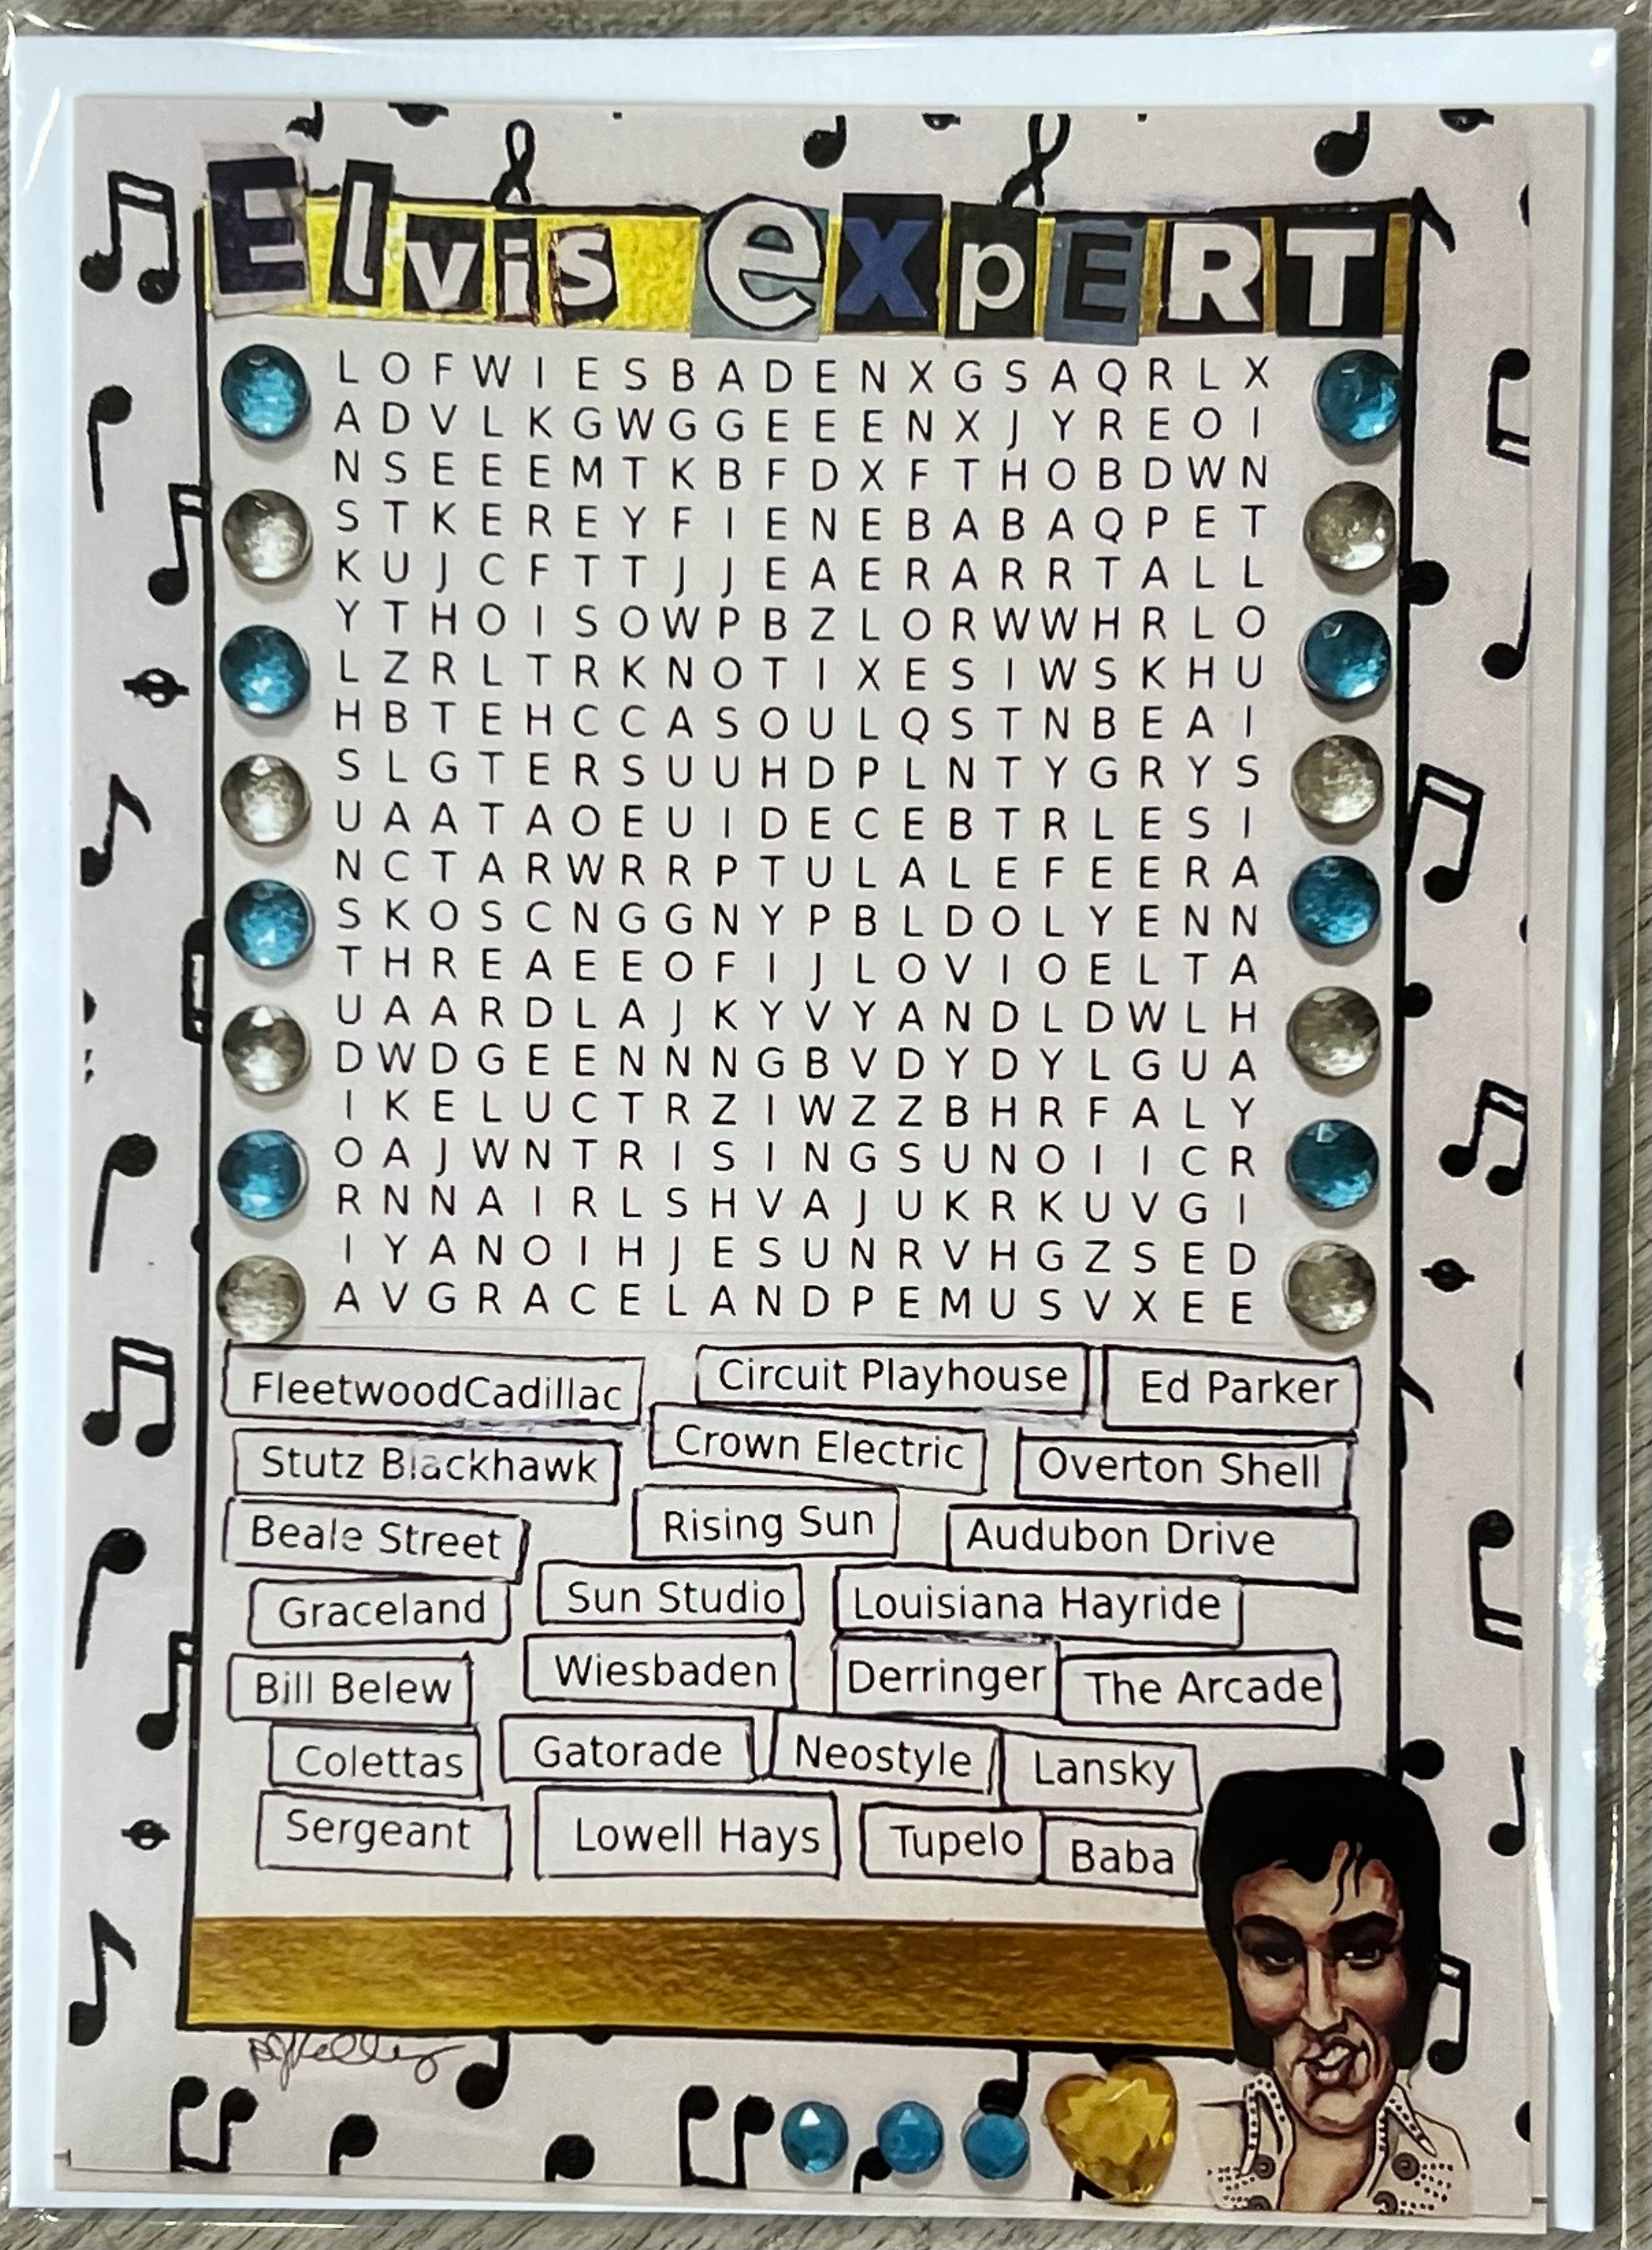 Elvis expERT
L O F W I E S B A D E N X G S A Q R L X
A D V L K G W G G E E E N X J Y R E O I
N S E E E M T K B F D X F T H O B D W N
S T K E R E Y F I E N E B A B A Q P E T
K U J C F T T J J E A E R A R R T A L L
Y T H O I S O W P B Z L O R W W H R L O
L Z R L T R K N O T I X E S I W S K H U
H B T E H C C A S O U L Q S T N B E A I
S L G T E R S U U H D P L N T Y G R Y S
U A A T A O E U I D E C E B T R L E S I
N C T A R W R R P T U L A L E F E E R A
S K O S C N G G N Y P B L D O L Y E N N
T H R E A E E O F I J L O V I O E L T A
U A A R D L A J K Y V Y A N D L D W L H
D W D G E E N N N G B V D Y D Y L G U A
I K E L U C T R Z I W Z Z B H R F A L Y
O A J W N T R I S I N G S U N O I I C R
R N N A I R L S H V A J U K R K U V G I
I Y A N O I H J E S U N R V H G Z S E D
A V G R A C E L A N D P E M U S V X E E
FleetwoodCadillac Circuit Playhouse Ed Parker
Stutz Blackhawk Crown Electric Overton Shell
Beale Street Rising Sun Audubon Drive
Graceland Sun Studio Louisiana Hayride
Bill Belew Wiesbaden Derringer The Arcade
Colettas Gatorade Neostyle Lansky
Sergeant Lowell Hays Tupelo Baba